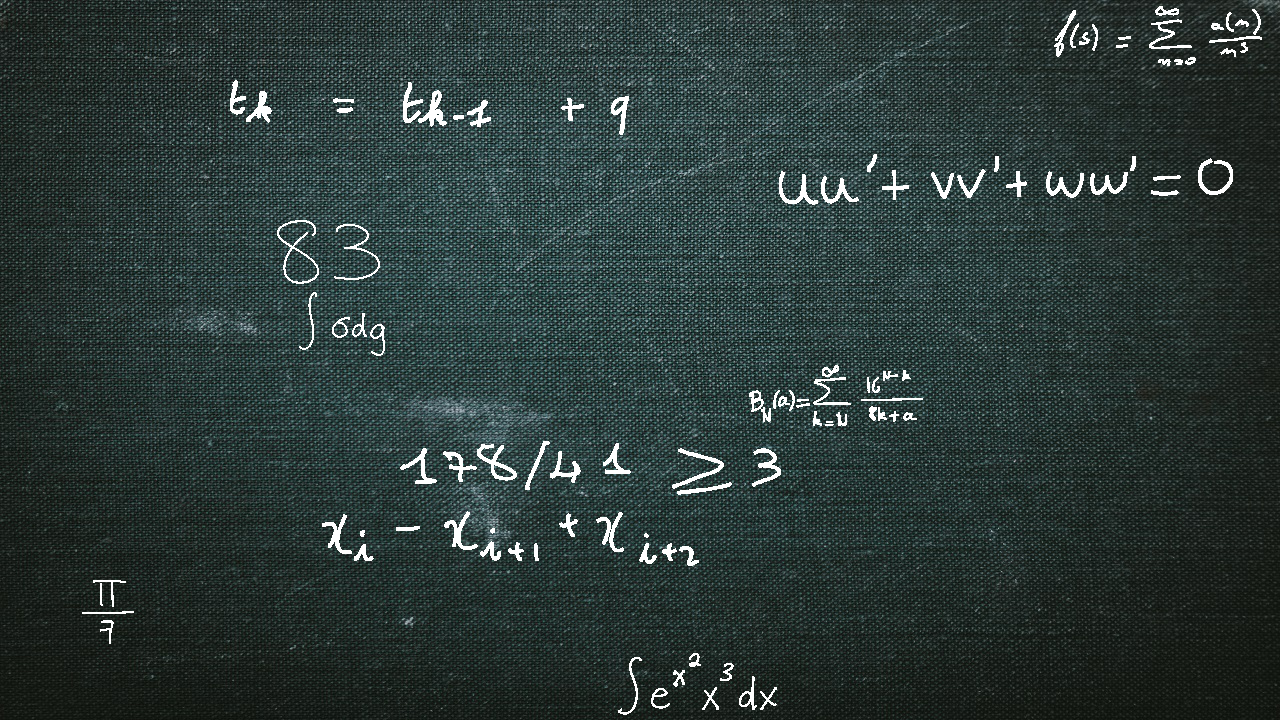 f(s) = \sum_{n=0}^{\infty} \frac{a(n)}{n^s}
t_k = t_{k-1} + q
uu' + vv' + ww' = 0
83
\int σdg
B_N(a) = \sum_{k=N}^{\infty} \frac{16^{N-k}}{8k+a}
178/41 ≥ 3
x_i - x_{i+1} + x_{i+2}
\frac{π}{7}
\int e^{x^2} x^3 dx